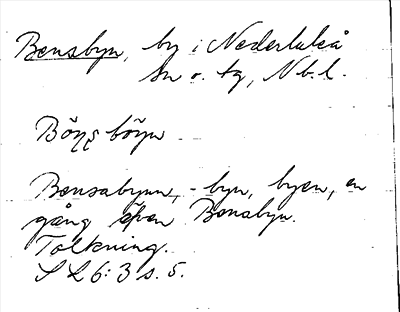 Bensbyn, by i Nederluleå
sn o. tg, Nb.l.
Böŋsböyn
Bensabynn, -byn, byen, en
gång även Bensbyn.
Tolkning.
SL 6:3 s. 5.